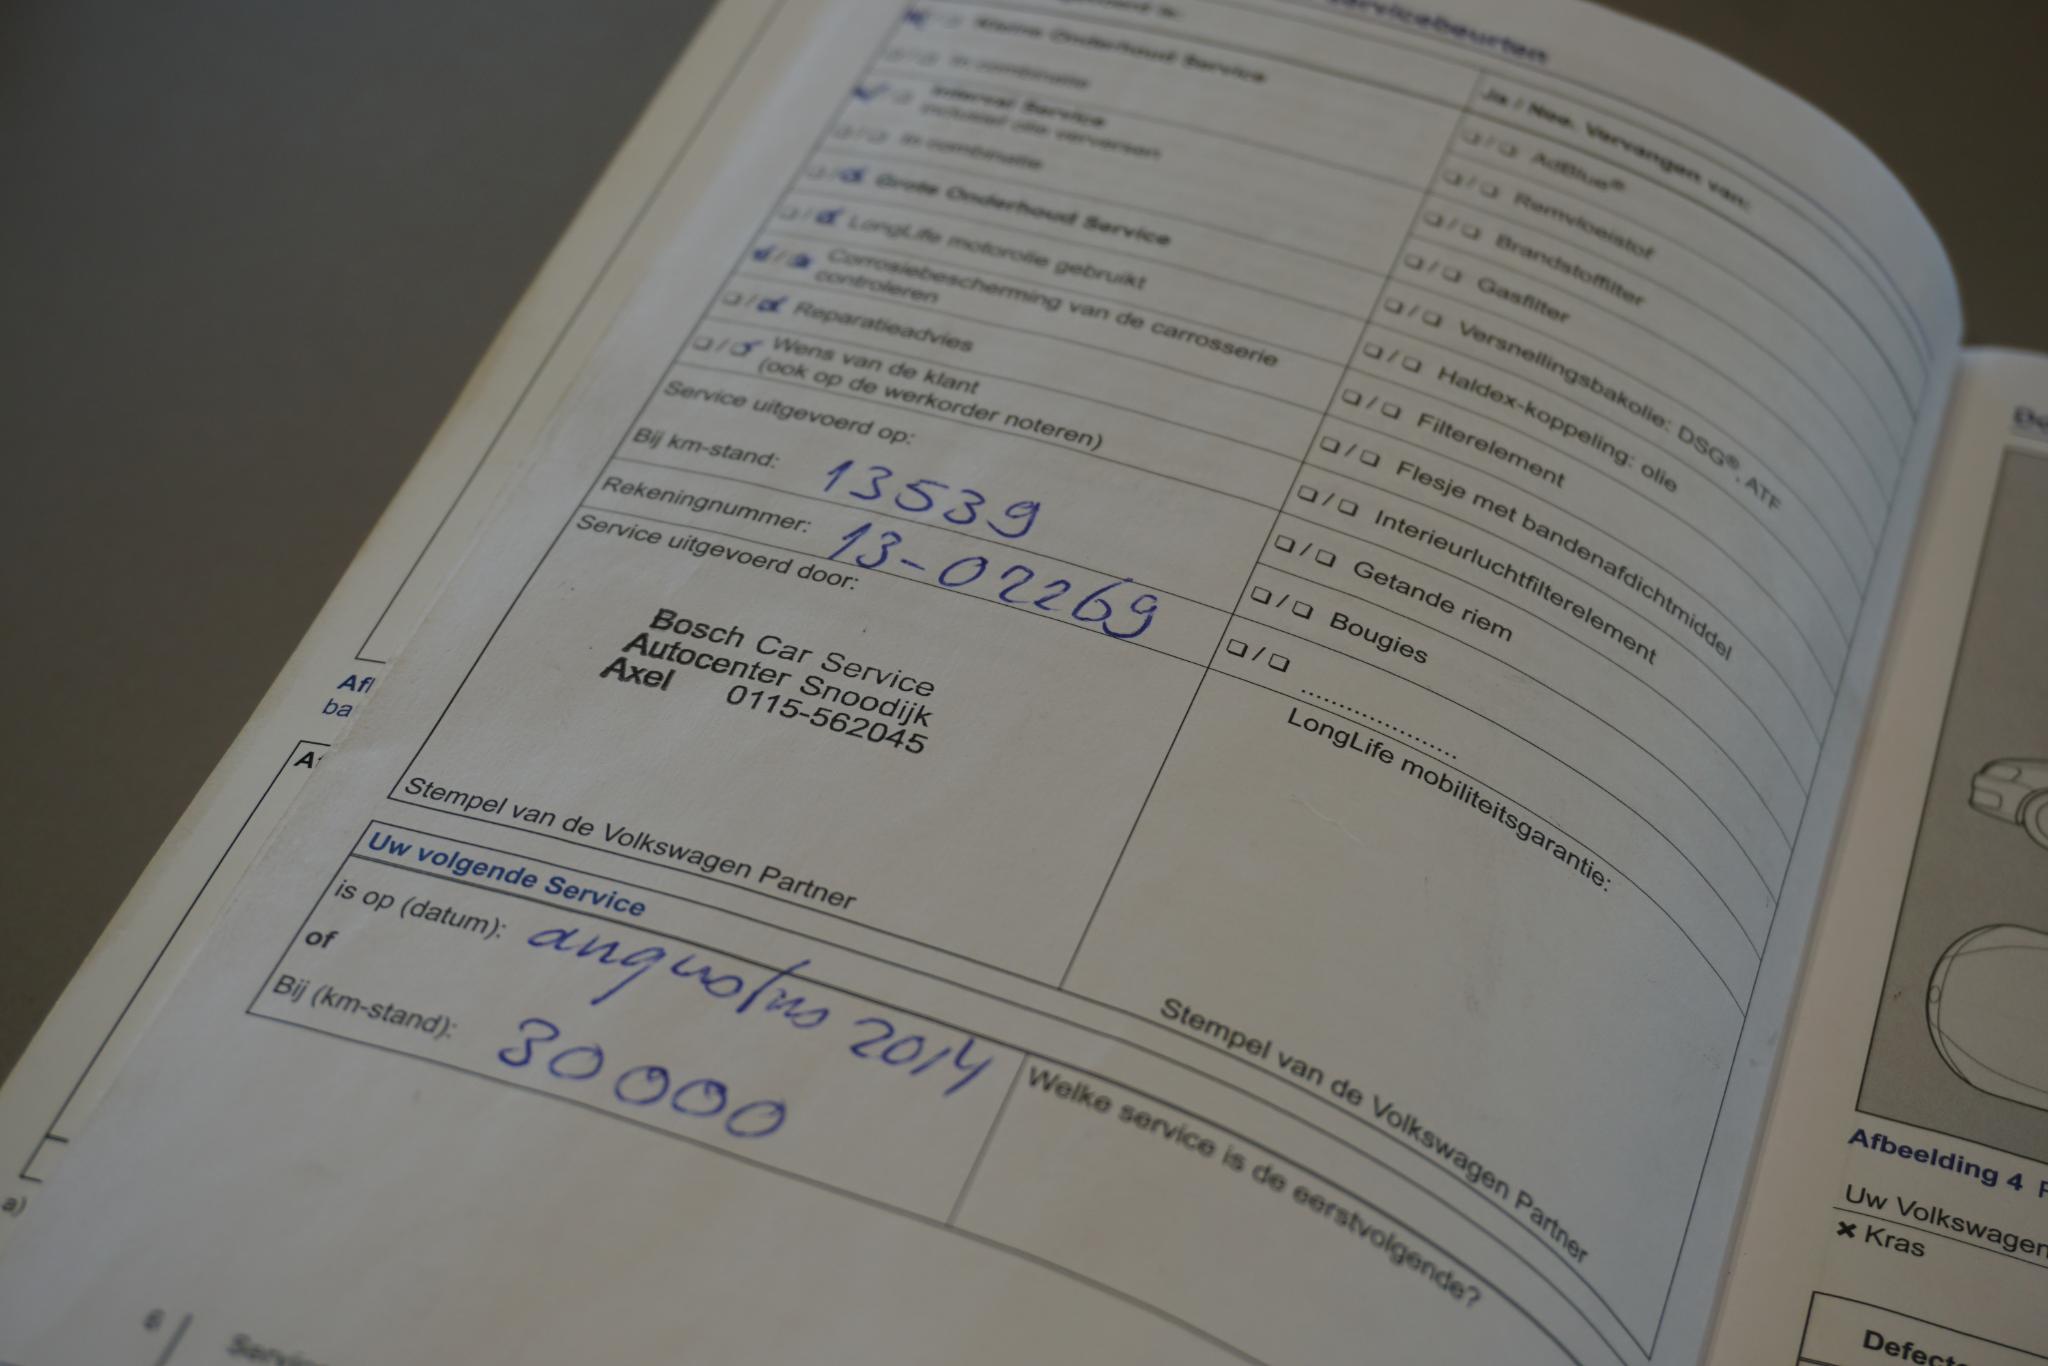 servicebeurten
Kleine Onderhoud Service
In combinatie
Interval Service
inclusief olie verversen
In combinatie
Grote Onderhoud Service
LongLife motorolie gebruikt
Corrosiebescherming van de carrosserie
controleren
Reparatieadvies
Wens van de klant
(ook op de werkorder noteren)
Service uitgevoerd op:
Bij km-stand: 13539
Rekeningnummer: 13-02269
Service uitgevoerd door:
Bosch Car Service
Autocenter Snoodijk
Axel 0115-562045
Stempel van de Volkswagen Partner
Ja / Nee. Vervangen van:
AdBlue®
Remvloeistof
Brandstoffilter
Gasfilter
Versnellingsbakolie: DSG®, ATF
Haldex-koppeling: olie
Filterelement
Flesje met bandenafdichtmiddel
Interieurluchtfilterelement
Getande riem
Bougies
....................
LongLife mobiliteitsgarantie:
Stempel van de Volkswagen Partner
Uw volgende Service
is op (datum): augustus 2014
of
Bij (km-stand): 30000
Welke service is de eerstvolgende?
6
a)
Afbeelding 4
Uw Volkswagen
× Kras